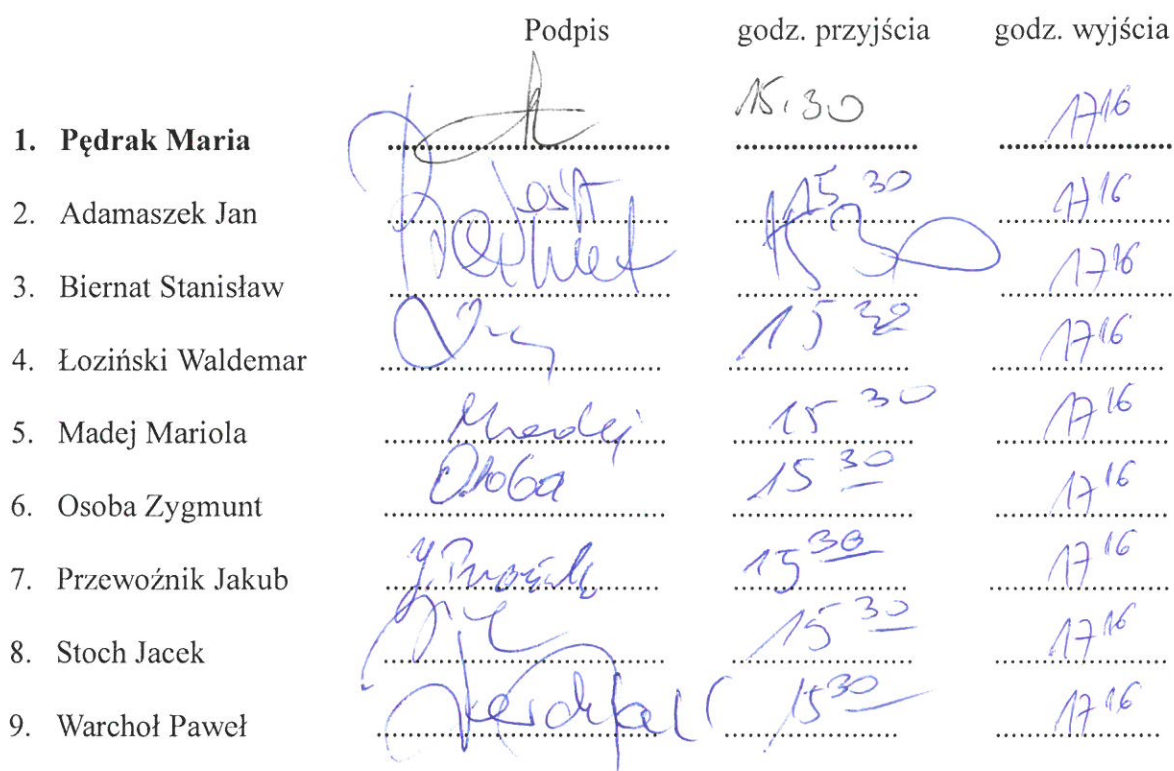 Podpis godz. przyjścia godz. wyjścia
1. Pędrak Maria 15.30 17 16
2. Adamaszek Jan 15 30 17 16
3. Biernat Stanisław Biernat 15 30 17 16
4. Łoziński Waldemar 15 30 17 16
5. Madej Mariola Madej 15 30 17 16
6. Osoba Zygmunt Osoba 15 30 17 16
7. Przewoźnik Jakub 15 30 17 16
8. Stoch Jacek 15 30 17 16
9. Warchoł Paweł 15 30 17 16